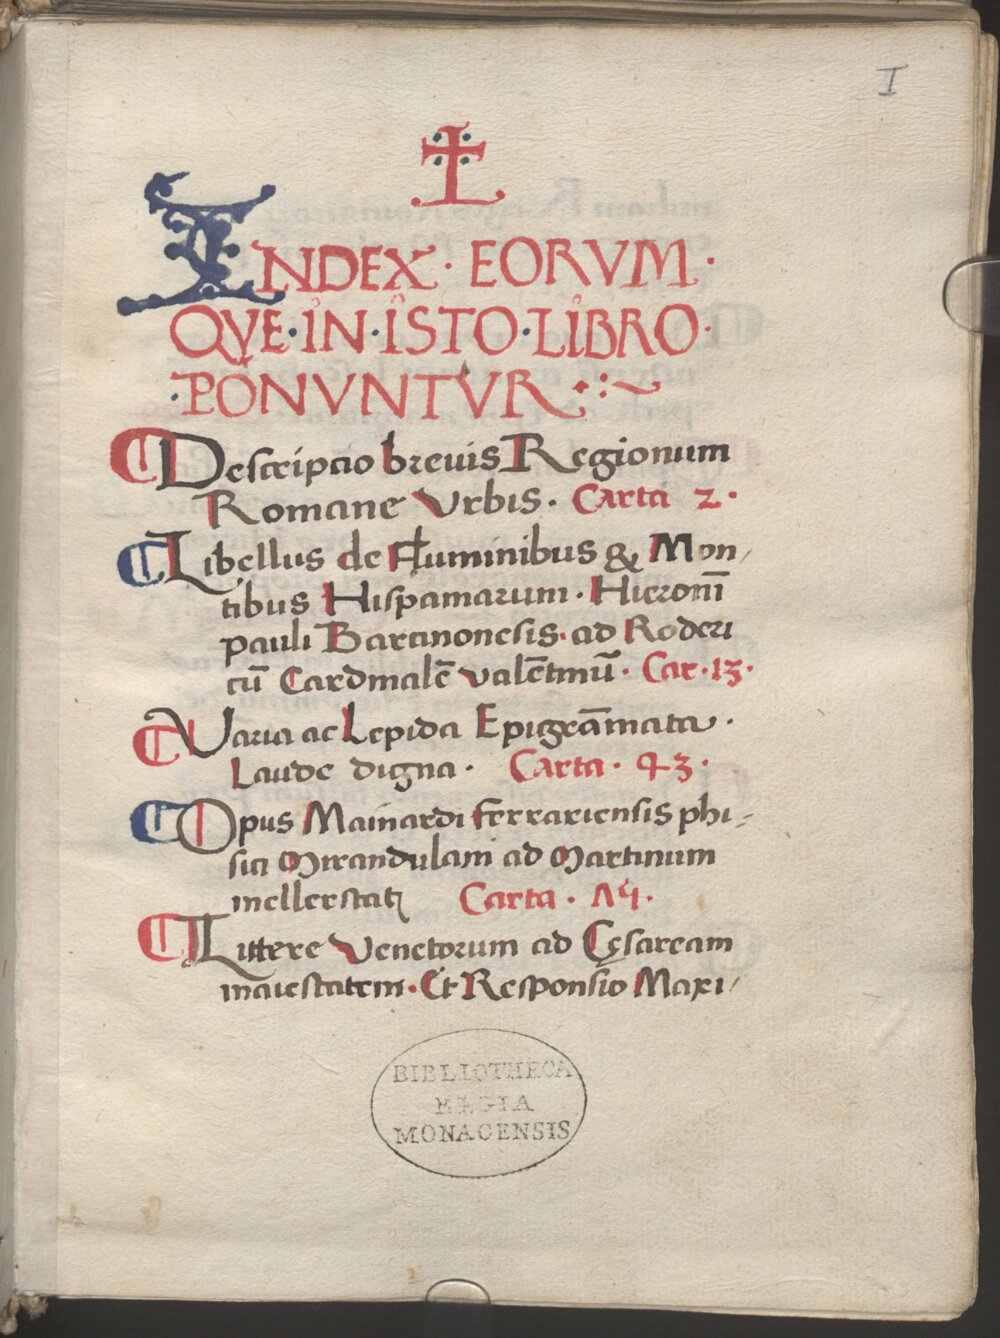 I
INDEX · EORVM ·
QVE · IN · ISTO · LIBRO ·
· PONVNTVR
Descriptio breuis Regionum
Romane Vrbis · Carta 2 ·
Libellus de Fluminibus & Mon,
tibus Hispamarum · Hieronī
pauli Barcinonesis · ad Roderi
cū Cardinalē valētinū · Car · 13 ·
Varia ac Lepida Epigrāmata ·
Laude digna · Carta · 43 ·
Opus Mainardi ferrariensis phi-
sici Mirandulani ad Martinum
mellerstatꝭ Carta ·
Littere Venetorum ad Cęsaream
maiestatem · Et Responsio Maxi/
BIBLIOTHECA
REGIA
MONACENSIS